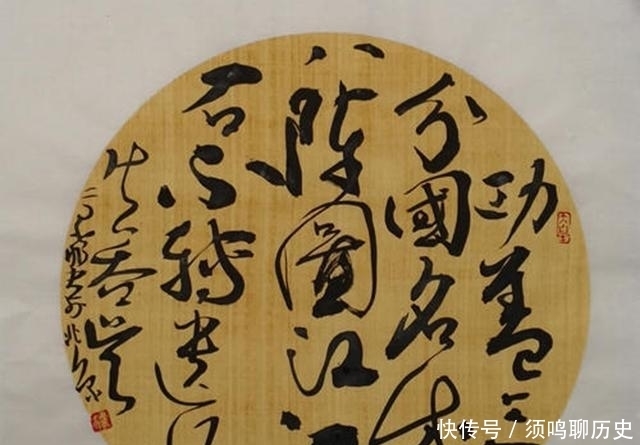 功盖三
分國名成
八陣圖江
石不轉遗
失吞吴
快传号 / 须鸣聊历史